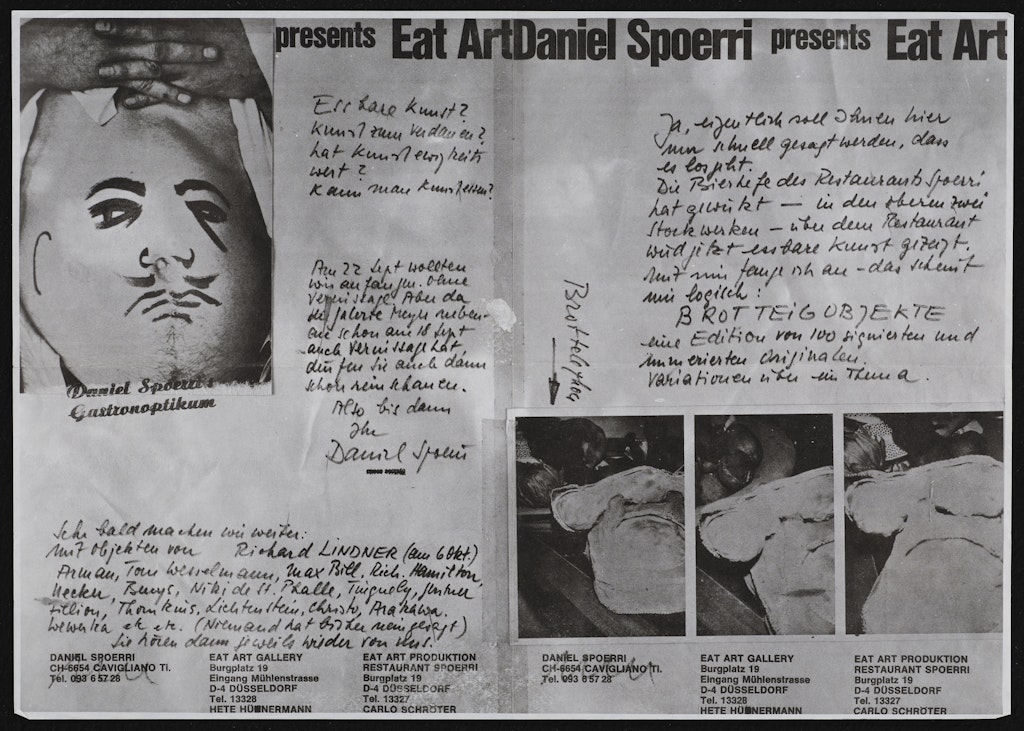 presents Eat Art
Daniel Spoerri presents Eat Art
Essbare Kunst?
Kunst zum Verdauen?
hat Kunst ewigkeits
wert?
Kann man Kunst essen?
Am 22 Sept wollten
wir anfangen. Ohne
Vernissage. Aber da
die Galerie Meyer neben-
an schon am 18 Sept
auch Vernissage hat,
dürfen Sie auch dann
schon reinschauen.
Also bis dann
Ihr
Daniel Spoerri
Daniel Spoerri's
Gastronoptikum
Sehr bald machen wir weiter:
mit Objekten von Richard LINDNER (am 6 Okt.)
Arman, Tom Wesselmann, Max Bill, Rich. Hamilton,
Uecker, Beuys, Niki de St. Phalle, Tinguely,
Filliou, Lichtenstein, Christo, Arakawa.
Wewerka etc etc. (Niemand hat bisher nein gesagt)
Sie hören dann jeweils wieder von uns.
DANIEL SPOERRI
CH-6654 CAVIGLIANO TI.
Tel. 093 6 57 28
EAT ART GALLERY
Burgplatz 19
Eingang Mühlenstrasse
D-4 DÜSSELDORF
Tel. 13328
HETE HÜNNERMANN
EAT ART PRODUKTION
RESTAURANT SPOERRI
Burgplatz 19
D-4 DÜSSELDORF
Tel. 13327
CARLO SCHRÖTER
Ja, eigentlich soll Ihnen hier
nur schnell gesagt werden, dass
es losgeht.
Die Bierhefe des Restaurants Spoerri
hat gewirkt — in den oberen zwei
Stockwerken — über dem Restaurant
wird jetzt essbare Kunst gezeigt.
Mit mir fange ich an - das scheint
mir logisch:
BROTTEIGOBJEKTE
eine Edition von 100 signierten und
numerierten Originalen.
Variationen über ein Thema.
DANIEL SPOERRI
CH-6654 CAVIGLIANO TI.
Tel. 093 6 57 28
EAT ART GALLERY
Burgplatz 19
Eingang Mühlenstrasse
D-4 DÜSSELDORF
Tel. 13328
HETE HÜNNERMANN
EAT ART PRODUKTION
RESTAURANT SPOERRI
Burgplatz 19
D-4 DÜSSELDORF
Tel. 13327
CARLO SCHRÖTER